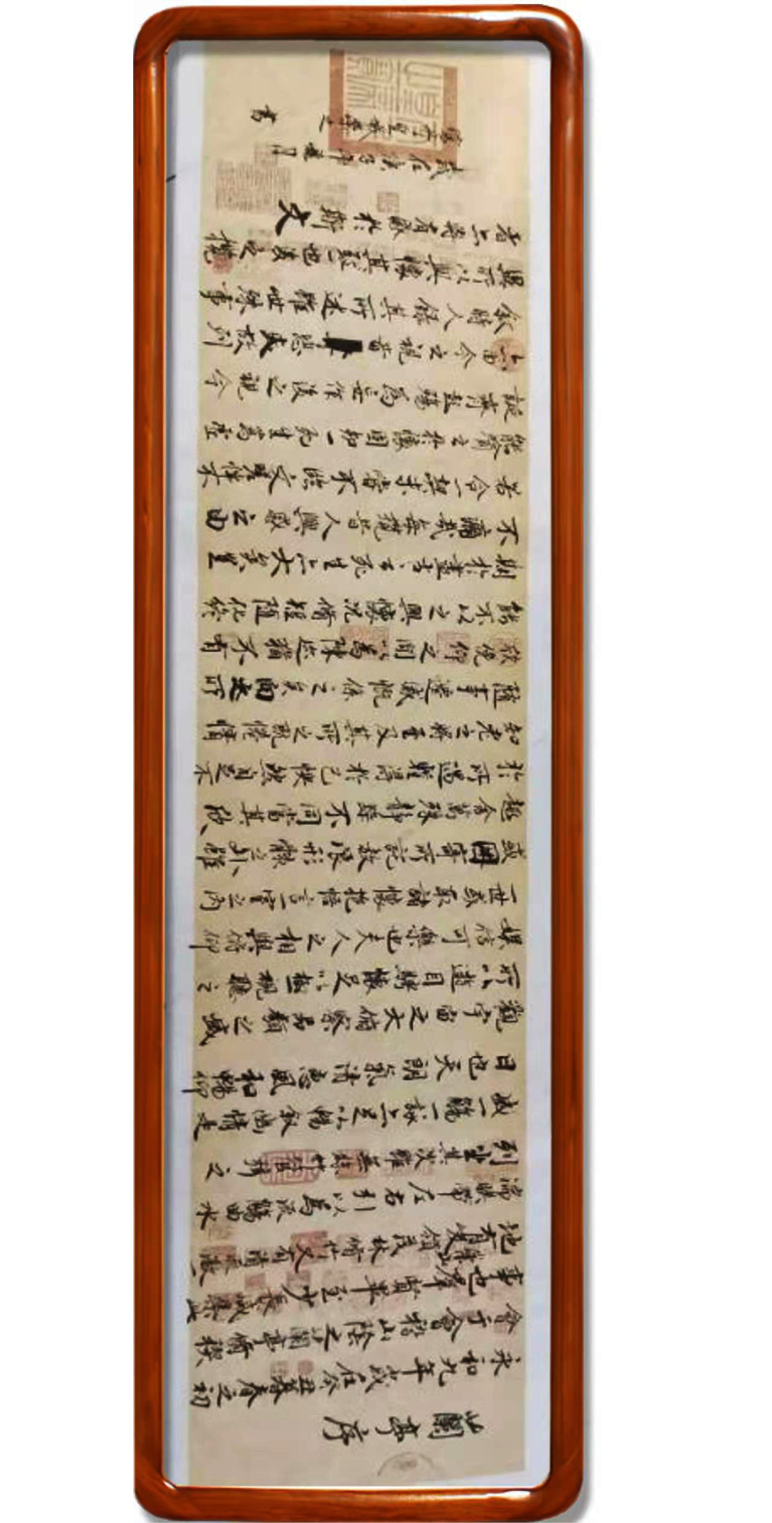 蘭亭序
永和九年歲在癸丑暮春之初
會于會稽山陰之蘭亭脩稧
事也群賢畢至少長咸集此
地有崇山峻領茂林脩竹又有清流激
湍暎帶左右引以為流觴曲水
列坐其次雖無絲竹管弦之
盛一觴一詠亦足以暢敘幽情是
日也天朗氣清惠風和暢仰
觀宇宙之大俯察品類之盛
所以遊目騁懷足以極視聽之
娛信可樂也夫人之相與俯仰
一世或取諸懷抱悟言一室之內
或因寄所託放浪形骸之外雖
趣舍萬殊靜躁不同當其欣
於所遇暫得於己快然自足不
知老之將至及其所之既惓情
隨事遷感慨係之矣向之所
欣俛仰之間以為陳迹猶不
能不以之興懷況脩短隨化終
期於盡古人云死生亦大矣豈
不痛哉每攬昔人興感之由
若合一契未嘗不臨文嗟悼不
能喻之於懷固知一死生為虛
誕齊彭殤為妄作後之視今
亦由今之視昔悲夫故列
敘時人錄其所述雖世殊事
異所以興懷其致一也後之攬
者亦將有感於斯文
歲在年月
書